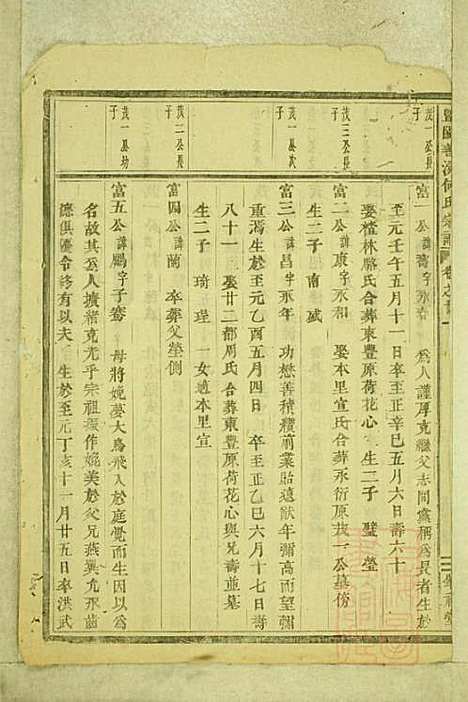 茂一公長子
富一公諱壽字永春 為人謹厚克繼父志閭黨稱為長者生於
至元壬午五月十一日卒至正辛巳五月六日壽六十
娶檀林駱氏合葬東豐原荷花心 生二子 璧 瑩
茂三公長子
富二公諱康字永和 娶本里宣氏合葬永衍原茂一公墓傍
生二子 南 斌
茂一公次子
富三公諱昌字永年 功懋善積纘前業貽遠猷年彌高而望彌
重焉生於至元乙酉五月四日 卒至正乙巳六月十七日壽
八十一 娶廿二都周氏合葬東豐原荷花心與兄壽並墓
生二子 琦 珵 一女適本里宣
茂二公長子
富四公諱蘭 卒葬父塋側
茂一公幼子
富五公諱鵬字子騫 母將娩夢大鳥飛入於庭覺而生因以為
名故其為人擴緒克光乎宗祖振作媲美於父兄燕翼允永齒
德俱優令終有以夫 生於至元丁亥十一月廿五日卒洪武
何氏宗譜 卷之